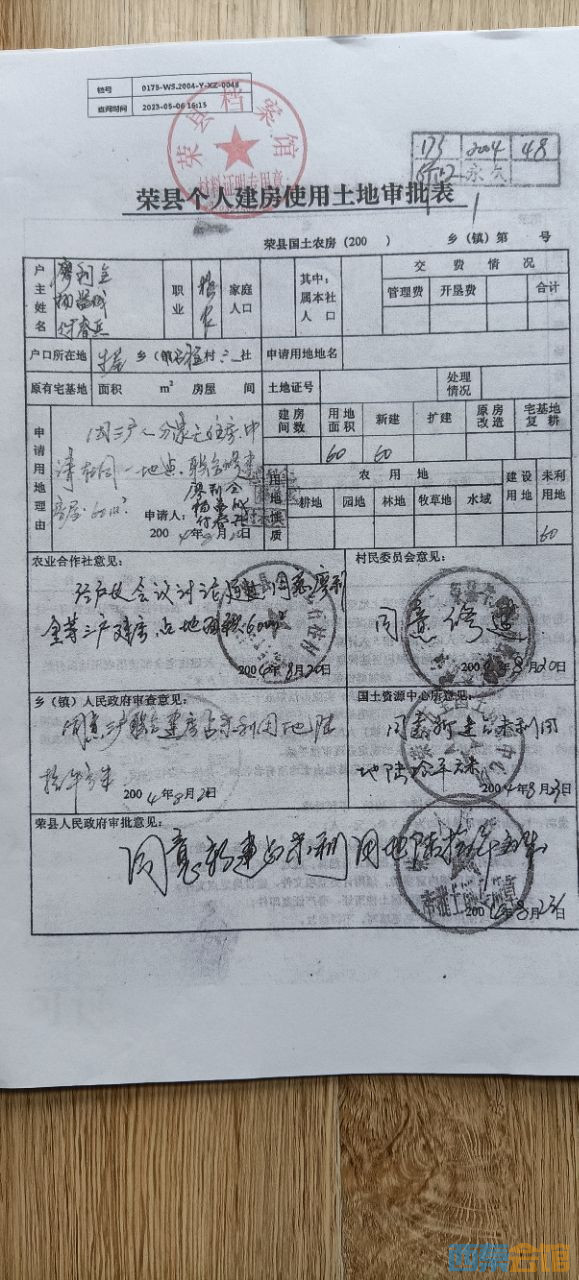 档号 0175-WS.2004-Y-XZ-0048
查阅时间 2023-05-06 16:15
荣县档案馆
材料证明专用章
175 2004 48
永久
荣县个人建房使用土地审批表
荣县国土农房(200 ) 乡(镇)第 号
户主姓名 廖利全
职业 务农
家庭人口
其中:属本社人口
交费情况
管理费 开垦费 合计
户口所在地 乡(镇) 村 社 申请用地地名
原有宅基地 面积 m² 房屋 间 土地证号 处理情况
申请用地理由
因三户人分家无住房.申
请在同一地点.联合修建
房屋.60m².
申请人: 廖利全
2004年8月20日
建房间数 用地面积 新建 扩建 原房改造 宅基地复耕
60 60
用地性质
农用地 建设用地 未利用地
耕地 园地 林地 牧草地 水域
60
农业合作社意见:
经户以会议讨论通过同意廖利
全等三户建房占地面积60m²
2004年8月20日
村民委员会意见:
同意修建.
2004年8月20日
乡(镇)人民政府审查意见:
同意三户联合建房占未利用地陆
拾平方米
2004年8月2 日
国土资源中心所意见:
同意新建占未利用
地陆拾平方米
2004年8月23日
荣县人民政府审批意见:
同意新建占未利用地陆拾平方米.
2004年8月23日